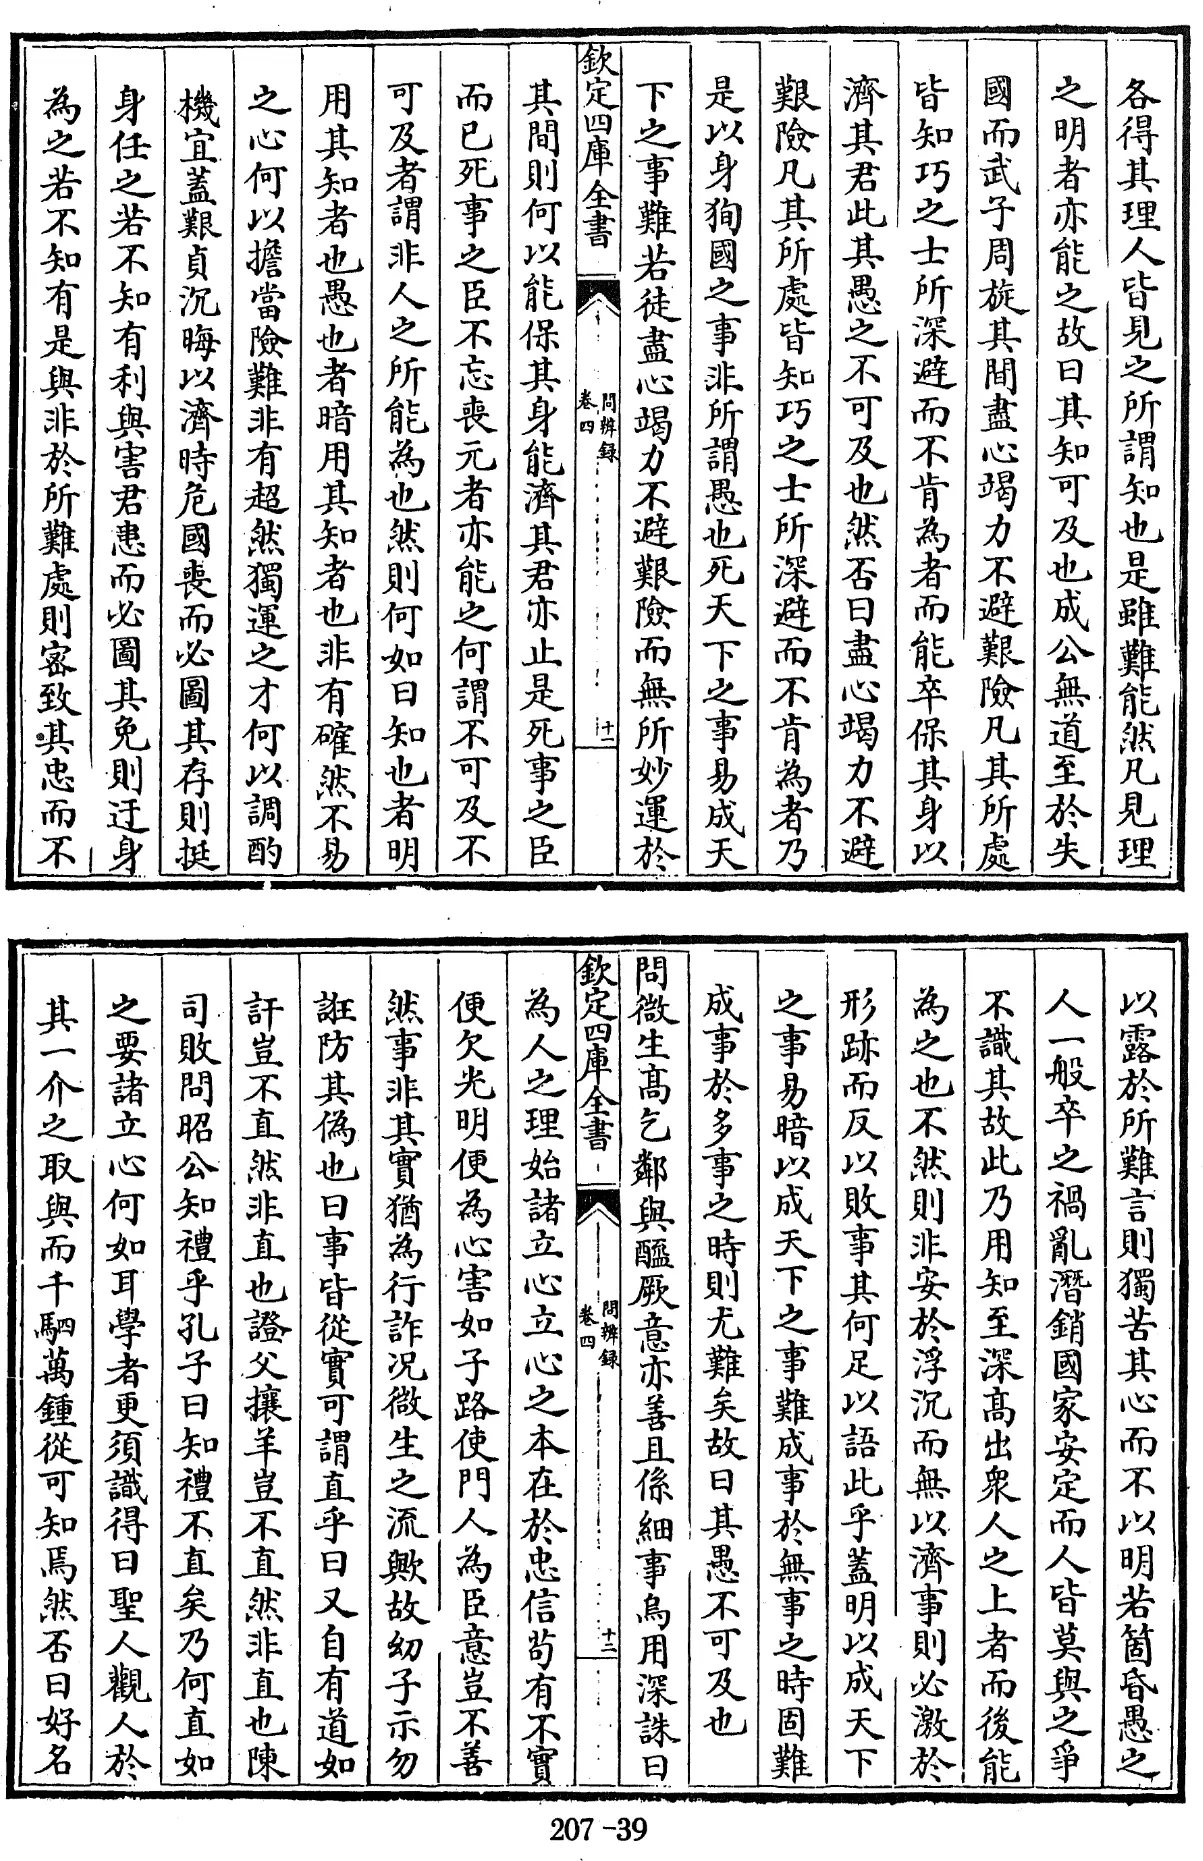 各得其理人皆見之所謂知也是雖難能然凡見理
之明者亦能之故曰其知可及也成公無道至於失
國而武子周旋其間盡心竭力不避艱險凡其所處
皆知巧之士所深避而不肯為者而能卒保其身以
濟其君此其愚之不可及也然否曰盡心竭力不避
艱險凡其所處皆知巧之士所深避而不肯為者乃
是以身狥國之事非所謂愚也死天下之事易成天
下之事難若徒盡心竭力不避艱險而無所妙運於
欽定四庫全書
問辨録
卷四
十一
其間則何以能保其身能濟其君亦止是死事之臣
而已死事之臣不忘喪元者亦能之何謂不可及不
可及者謂非人之所能為也然則何如曰知也者明
用其知者也愚也者暗用其知者也非有確然不易
之心何以擔當險難非有超然獨運之才何以調酌
機宜蓋艱貞沉晦以濟時危國喪而必圖其存則挺
身任之若不知有利與害君患而必圖其免則迂身
為之若不知有是與非於所難處則宻致其忠而不
以露於所難言則獨苦其心而不以明若箇昏愚之
人一般卒之禍亂潛銷國家安定而人皆莫與之爭
不識其故此乃用知至深髙出衆人之上者而後能
為之也不然則非安於浮沉而無以濟事則必激於
形跡而反以敗事其何足以語此乎蓋明以成天下
之事易暗以成天下之事難成事於無事之時固難
成事於多事之時則尤難矣故曰其愚不可及也
問微生髙乞鄰與醯厥意亦善且係細事烏用深誅曰
欽定四庫全書
問辨録
卷四
十二
為人之理始諸立心立心之本在於忠信茍有不實
便欠光明便為心害如子路使門人為臣意豈不善
然事非其實猶為行詐况微生之流歟故幼子示勿
誑防其偽也曰事皆從實可謂直乎曰又自有道如
訐豈不直然非直也證父攘羊豈不直然非直也陳
司敗問昭公知禮乎孔子曰知禮不直矣乃何直如
之要諸立心何如耳學者更須識得曰聖人觀人於
其一介之取與而千駟萬鍾從可知焉然否曰好名
207-39